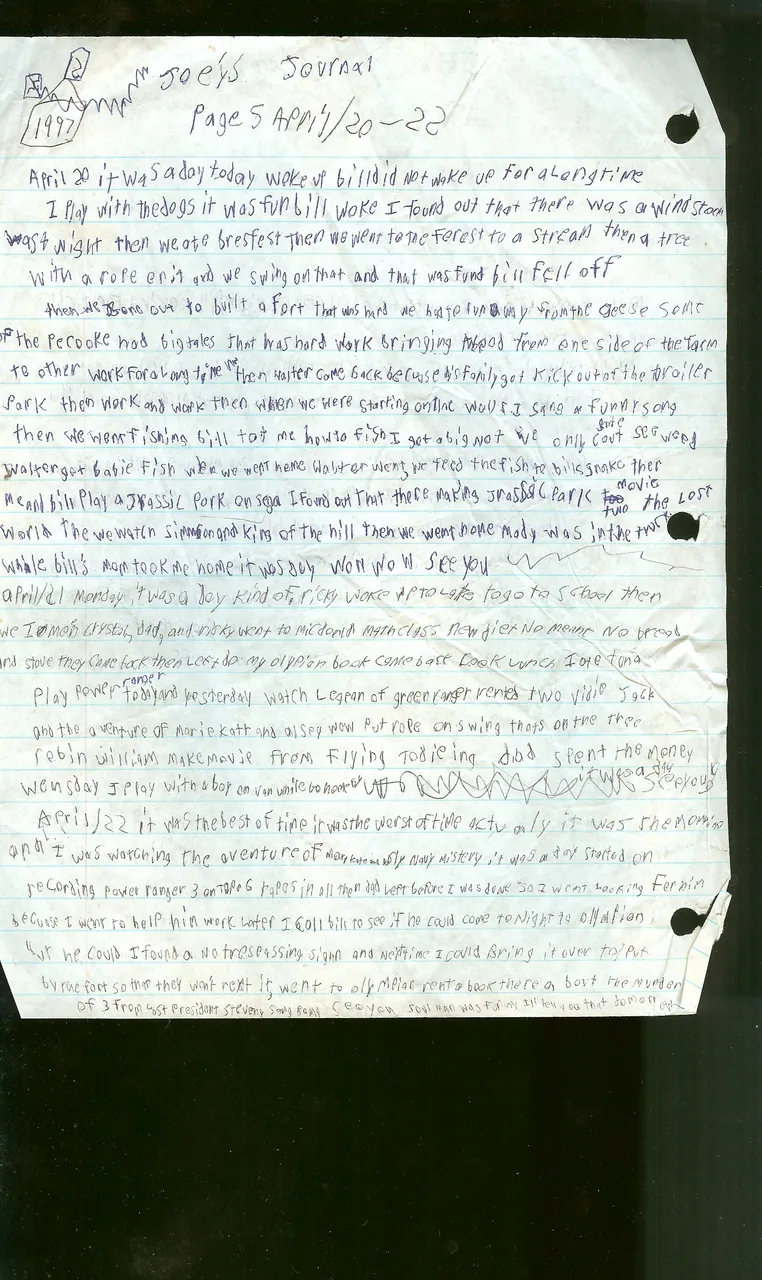 Joey's Journal
1997
Page 5 April/20-22
April 20 it was a day today woke up bill did not wake up for a long time
I Play with the dogs it was fun bill woke I found out that there was a wind storm
last night then we ate then we went to the Forest to a stream then a tree
with a rope on it and we swing on that and that was fund bill fell off
then we gone out to built a Fort that was hard we had to run away from the geese some
of the had big tales that was hard work bringing from one side of the farm
to other work for a long time then walter come back because his family got kick out of the trailer
Park then work and work then when we were starting on the walls I sang a funny song
then we went fishing bill tot me how to fish I got a big not we only cout sea weed
walter got babie fish when we went home walter went, we feed the fish to bills snake ther
me and bill play a Jrassic Park on sega I found out that there making Jrassic Park two movie the Lost
World The we watch simmson and king of the hill then we went home mady was in the
whale bill's mom took me home it was day won wow see you
April/21 Monday it was a day kind of, ricky woke up to late to go to school then
we I, crystal, dad, and ricky went to math class new No meant No bread
and stove they came back then Left do my olypian book came base cook Lunch I ate tuna
Play Power ranger today and yesterday watch Legean of green ranger rented two vidie Jack
and the aventure of marie katt and alsey wow put rope on swing thats on the tree
robin william make movie from flying dad spent the money
wensday I play with a boy on van while it was a day See you
April/22 it was the best of time it was the worst of time actu only it was the morning
and I was watching the aventure of navy mistery, it was a day started on
recording Power ranger 3 on tape 6 tapes in all then dad left before I was done so I went looking For him
because I went to help him work Later I call bill to see if he could come tonight to olympian,
but he could I found a no trespassing signn and next time I could Bring it over to put
by the fort so that they wont reck it, went to olympian rent a book there a bout the murder
of 3 from president Stevens song Bomb See you soul man was funny Ill tell you that tomorrow